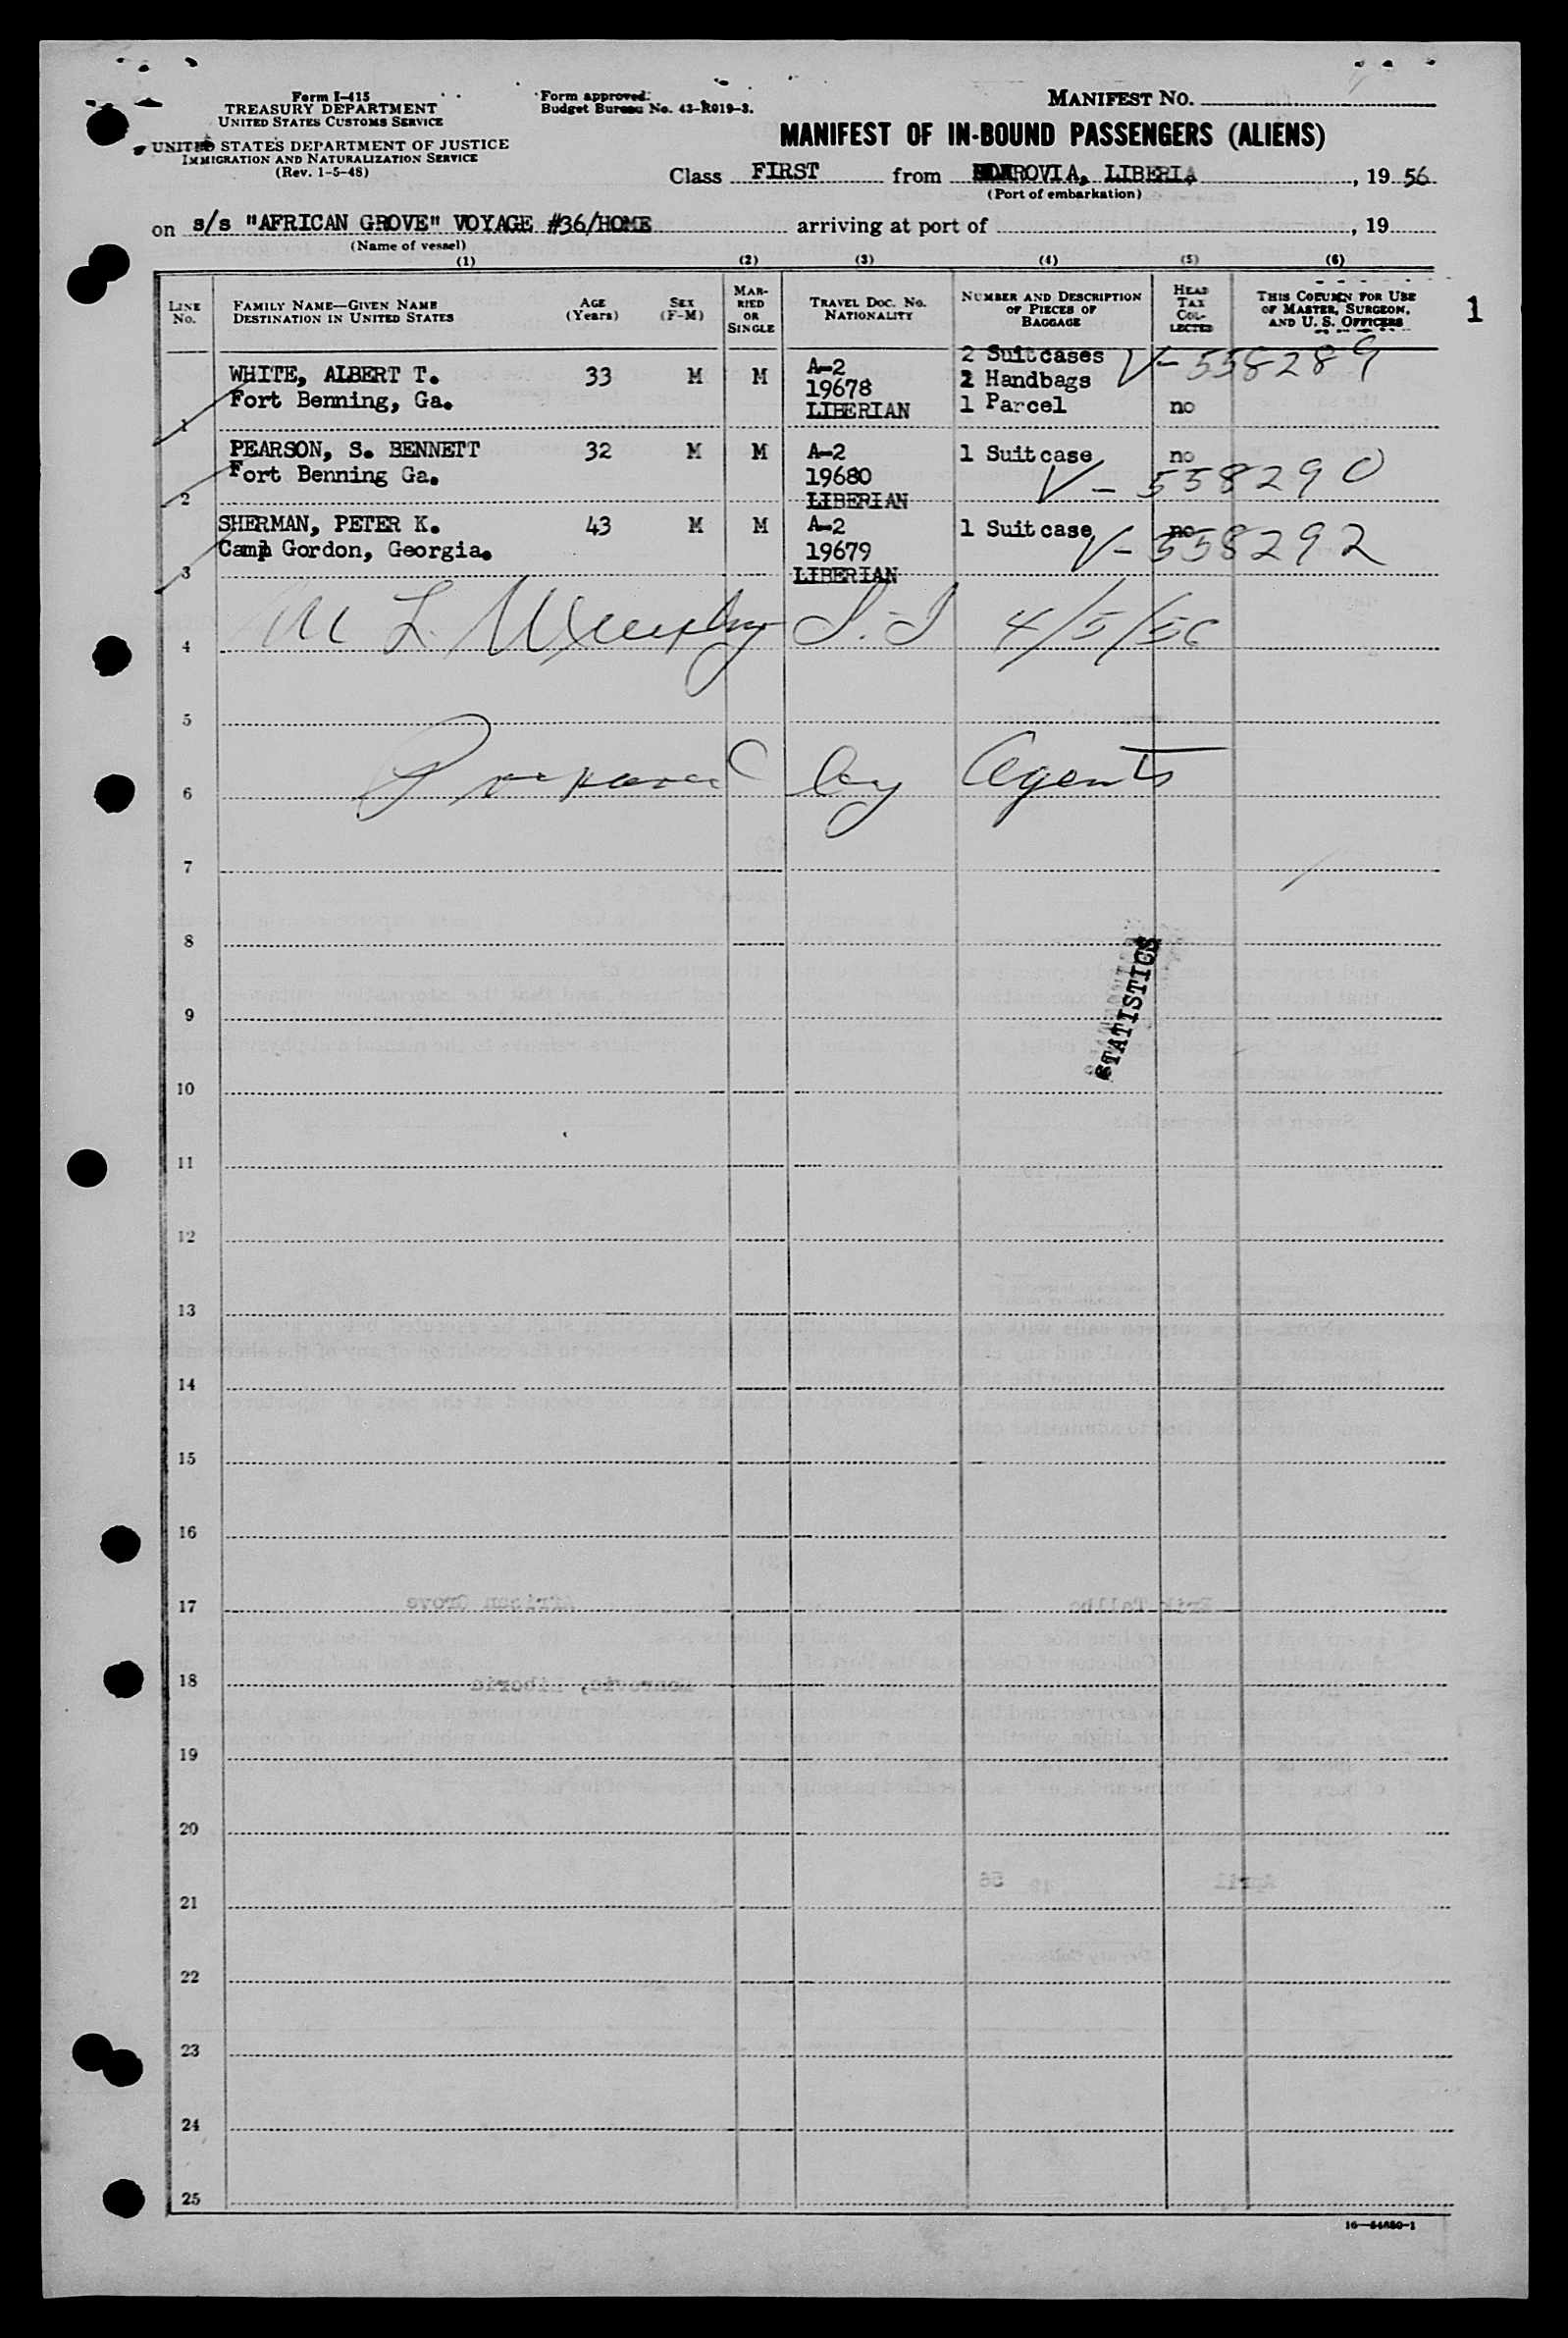 Form I-415
TREASURY DEPARTMENT
UNITED STATES CUSTOMS SERVICE
UNITED STATES DEPARTMENT OF JUSTICE
IMMIGRATION AND NATURALIZATION SERVICE
(Rev. 1-5-48)
Form approved.
Budget Bureau No. 43-R019-3.
MANIFEST NO.
MANIFEST OF IN-BOUND PASSENGERS (ALIENS)
Class FIRST from MONROVIA, LIBERIA, 1956
(Port of embarkation)
on s/s "AFRICAN GROVE" VOYAGE #36/HOME arriving at port of , 19
(Name of vessel)
(1) (2) (3) (4) (5) (6)
LINE No.
FAMILY NAME—GIVEN NAME
DESTINATION IN UNITED STATES
AGE (Years)
SEX (F-M)
MARRIED OR SINGLE
TRAVEL DOC. NO. NATIONALITY
NUMBER AND DESCRIPTION OF PIECES OF BAGGAGE
HEAD TAX COLLECTED
THIS COLUMN FOR USE OF MASTER, SURGEON, AND U. S. OFFICERS
1
2 Suitcases
WHITE, ALBERT T. 33 M M A-2 2 Handbags V-558289
19678
Fort Benning, Ga. LIBERIAN 1 Parcel no
1
PEARSON, S. BENNETT 32 M M A-2 1 Suitcase no
Fort Benning Ga. 19680 V-558290
2 LIBERIAN
SHERMAN, PETER K. 43 M M A-2 1 Suitcase no
Camp Gordon, Georgia. 19679 V-558292
3 LIBERIAN
4 M L Murphy I.I 4/5/56
5
6 Prepared by Agents
7
8
STATISTICS
9
10
11
12
13
14
15
16
17
18
19
20
21
22
23
24
25
16—54680-1